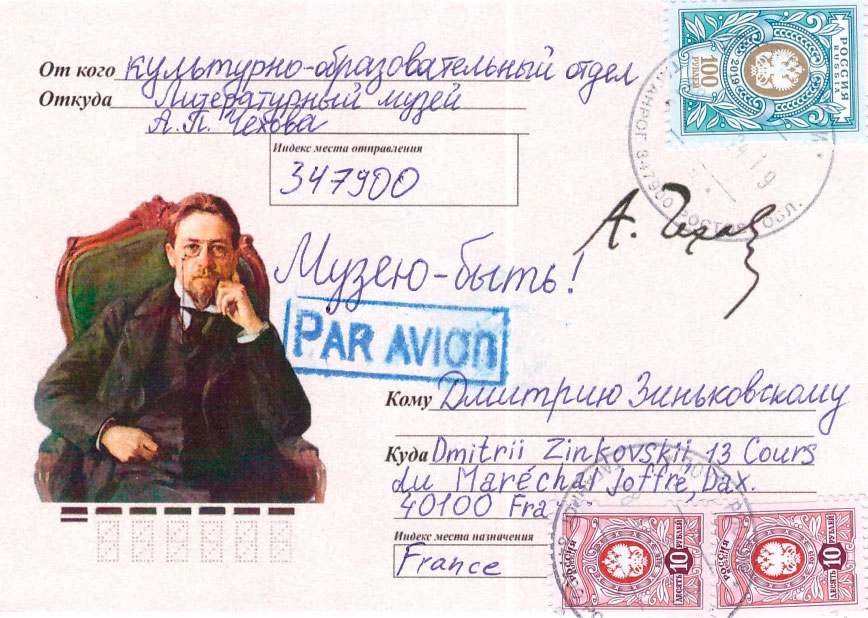 От кого культурно-образовательный отдел
Откуда Литературный музей
А.П. Чехова
Индекс места отправления
347900
РОССИЯ
RUSSIA
2019
100
РУБЛЕЙ
ТАГАНРОГ
А. Чехов
Музею-быть!
PAR AVION
Кому Дмитрию Зиньковскому
Куда Dmitrii Zinkovskii, 13 Cours
du Maréchal Joffre, Dax.
40100 Fra
Индекс места назначения
France
РОССИЯ
10
ДЕСЯТЬ РУБЛЕЙ
РОССИЯ
2019
10
ДЕСЯТЬ РУБЛЕЙ